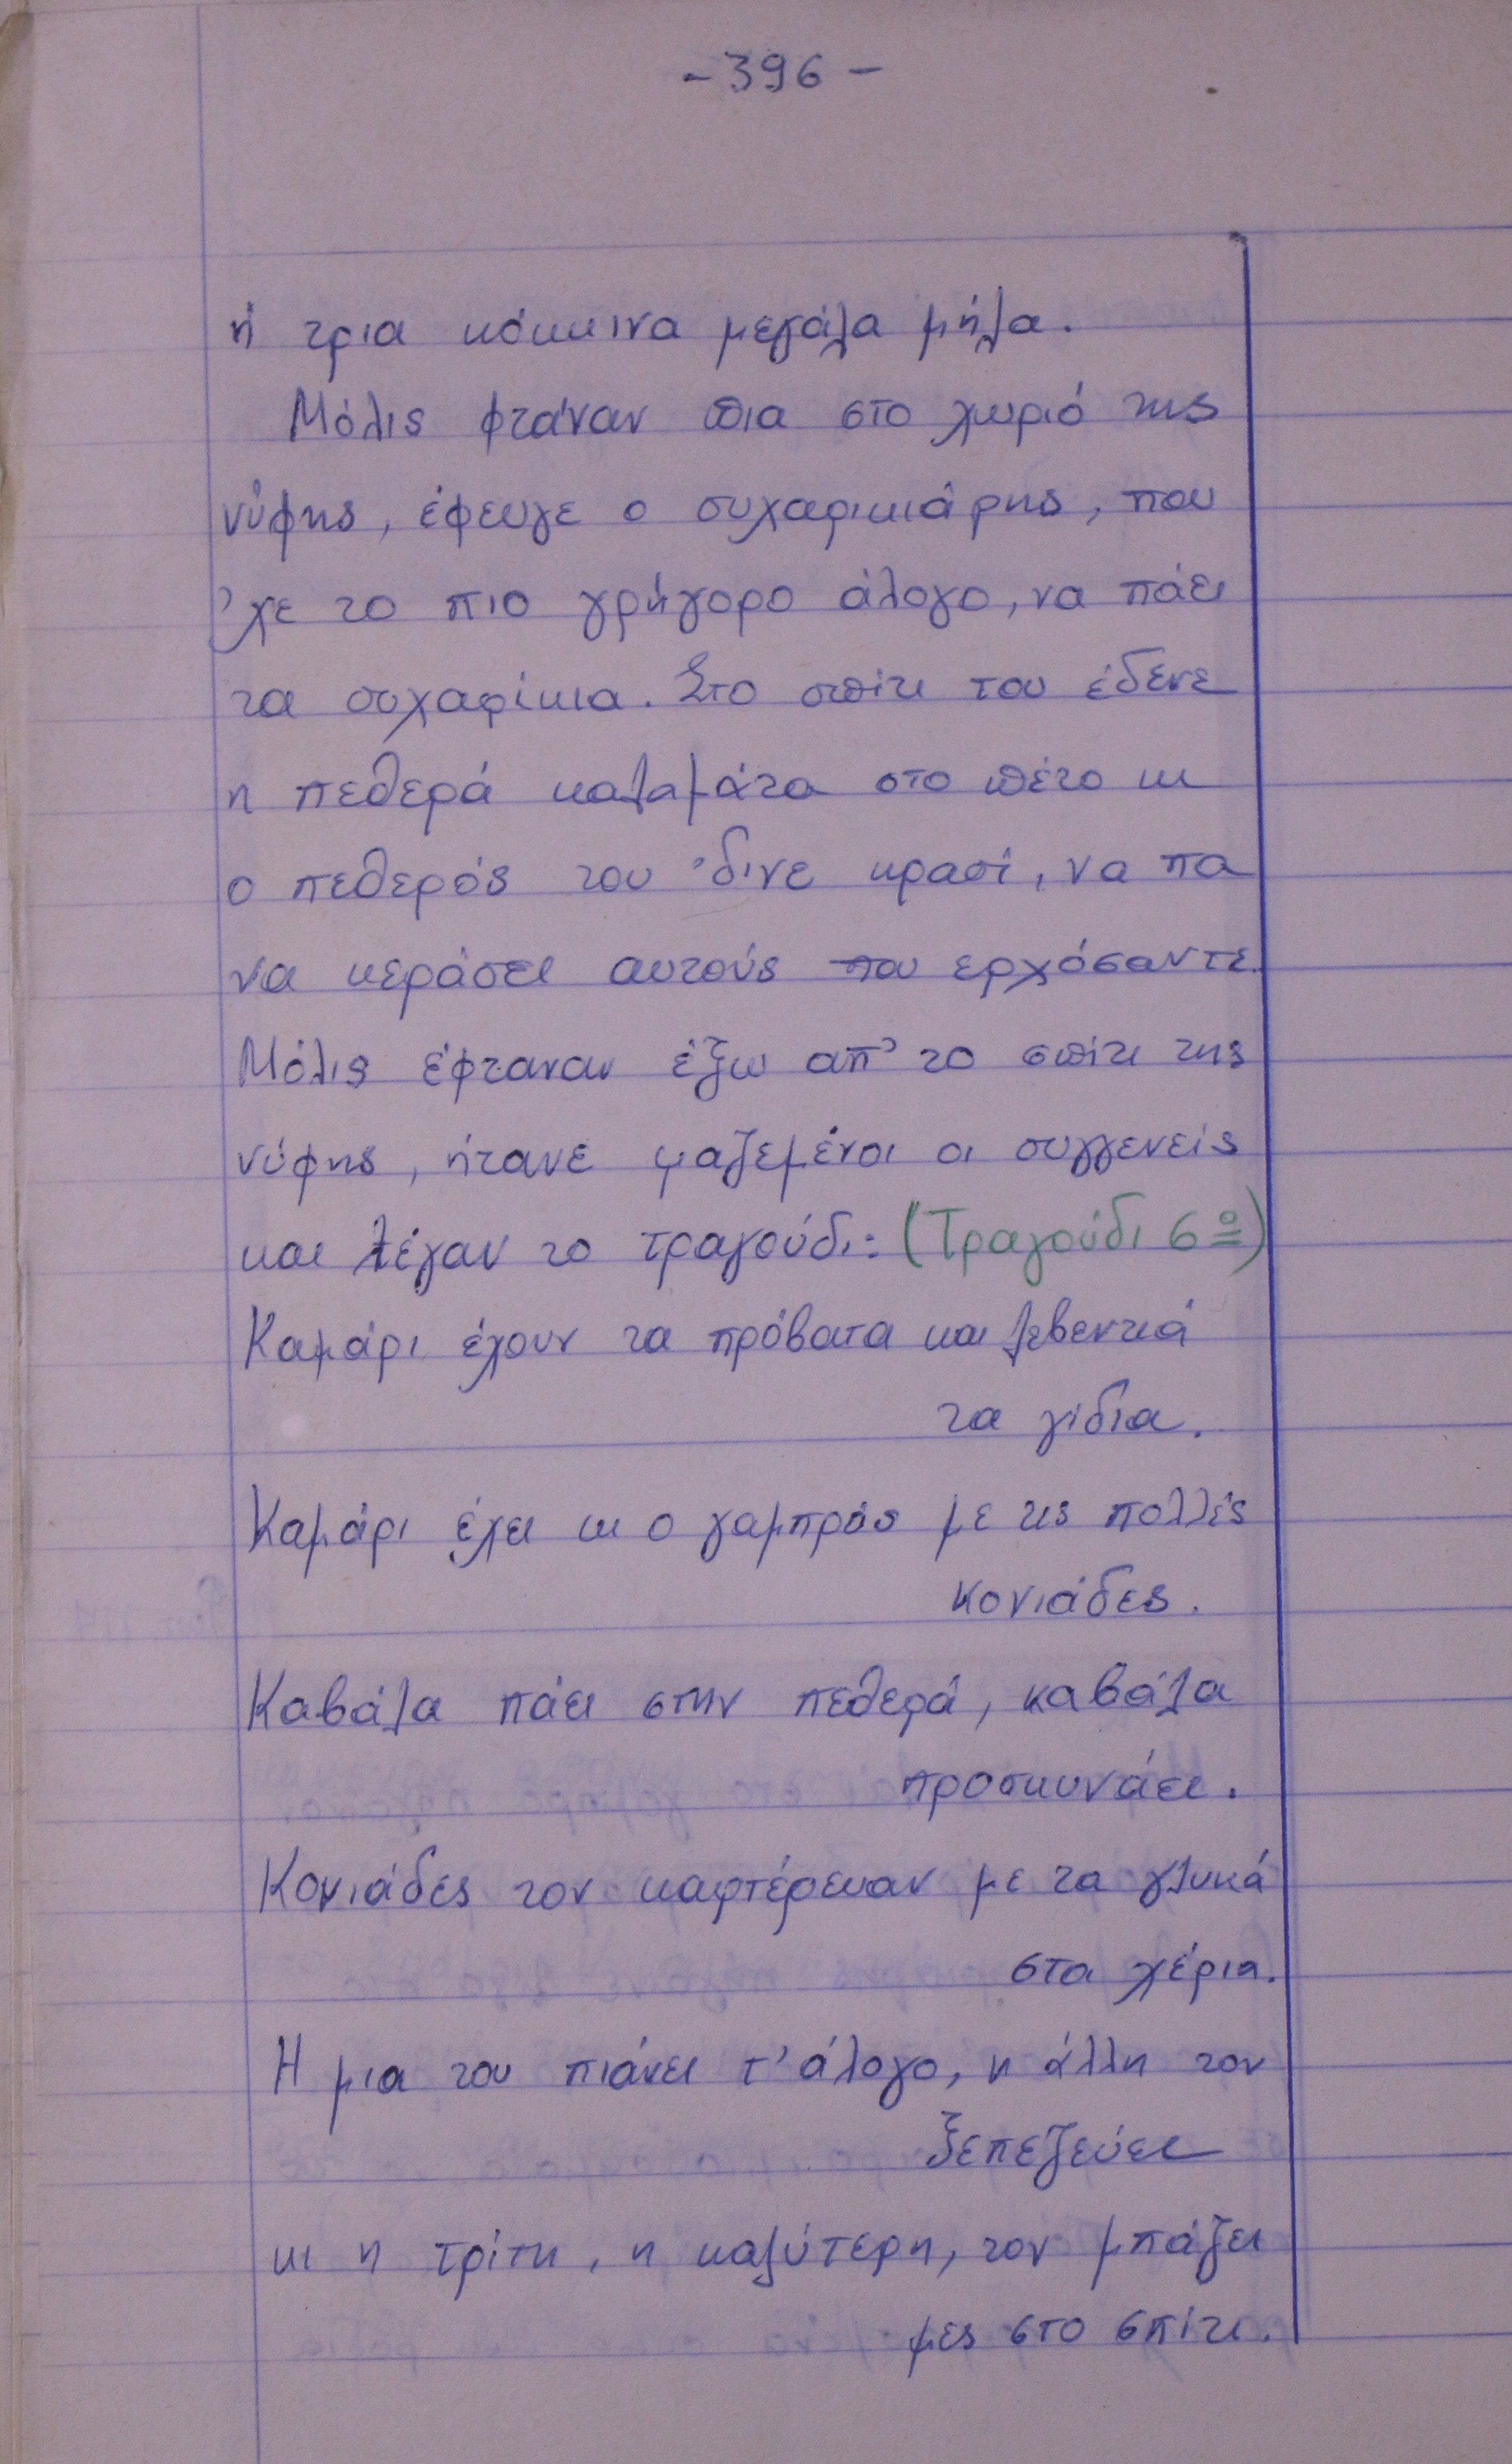 - 396 -
ή τρια κόκκινα μεγάλα μήλα.
Μόλις φτάναν πια στο χωριό της
νύφης, έφευγε ο συχαρικιάρης, που
'χε το πιο γρήγορο άλογο, να πάει
τα συχαρίκια. Στο σπίτι του έδενε
η πεθερά καλαμάτα στο πέτο κι
ο πεθερός του 'δινε κρασί, να πα
να κεράσει αυτούς που ερχόσαντε.
Μόλις έφταναν έξω απ' το σπίτι της
νύφης, ήτανε μαζεμένοι οι συγγενείς
και λέγαν το τραγούδι: (Τραγούδι 6ο)
Καμάρι έχουν τα πρόβατα και λεβεντιά
τα γίδια.
Καμάρι έχει κι ο γαμπρός με τις πολλές
κονιάδες.
Καβάλα πάει στην πεθερά, καβάλα
προσκυνάει.
Κονιάδες τον καρτέρευαν με τα γλυκά
στα χέρια.
Η μια του πιάνει τ' άλογο, η άλλη τον
ξεπεζεύει
κι η τρίτη, η καλύτερη, τον μπάζει
μες στο σπίτι.